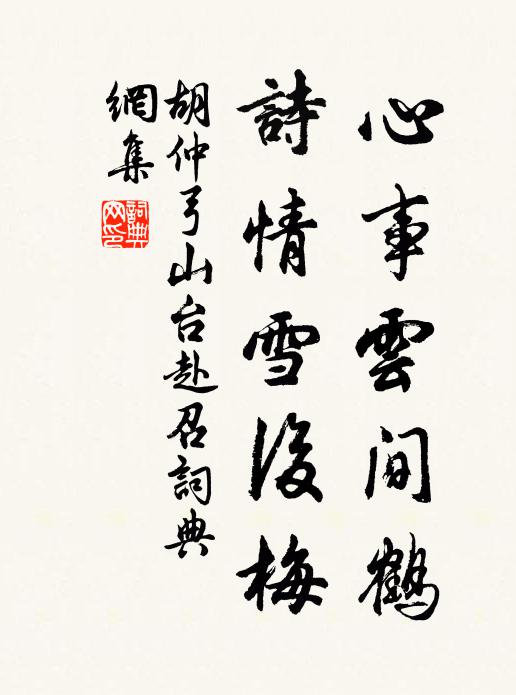 心事雲間鶴
詩情雪後梅
胡仲弓山台赴召詞典
網集
詞典
网印